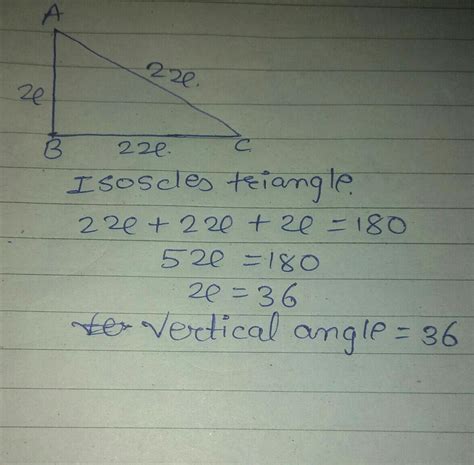 A
x
2x
B
2x
C
Isoscles triangle.
2x + 2x + x = 180
5x = 180
x = 36
Vertical angle = 36